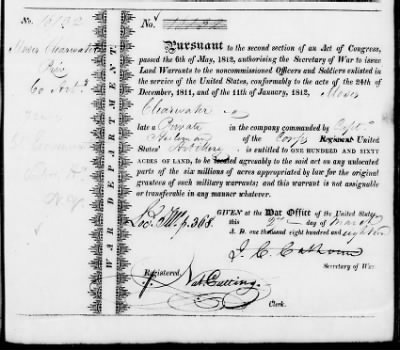 No.
Moses Clearwater
Priv.
Co Art.
N.Y.
WAR DEPARTMENT.
No.
Pursuant to the second section of an Act of Congress,
passed the 6th of May, 1812, authorising the Secretary of War to issue
Land Warrants to the noncommissioned Officers and Soldiers enlisted in
the service of the United States, conformably to the acts of the 24th of
December, 1811, and of the 11th of January, 1812, Moses
Clearwater
late a Private in the company commanded by Capt.
of the Corps Regiment United
States' Artillery is entitled to ONE HUNDRED AND SIXTY
ACRES OF LAND, to be located agreeably to the said act on any unlocated
parts of the six millions of acres appropriated by law for the original
grantees of such military warrants; and this warrant is not assignable
or transferable in any manner whatever.
GIVEN at the War Office of the United States,
this day of March
A. D. one thousand eight hundred and eighteen
J. C. Calhoun
Secretary of War.
Registered,
Nat. Cutting,
Clerk.